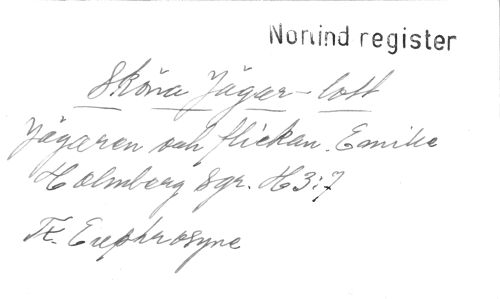 Norlind register
Sköna Jägar-lott
Jägaren och flickan. Emilie
Holmberg Sgr. H3:7
Tr. Euphrosyne